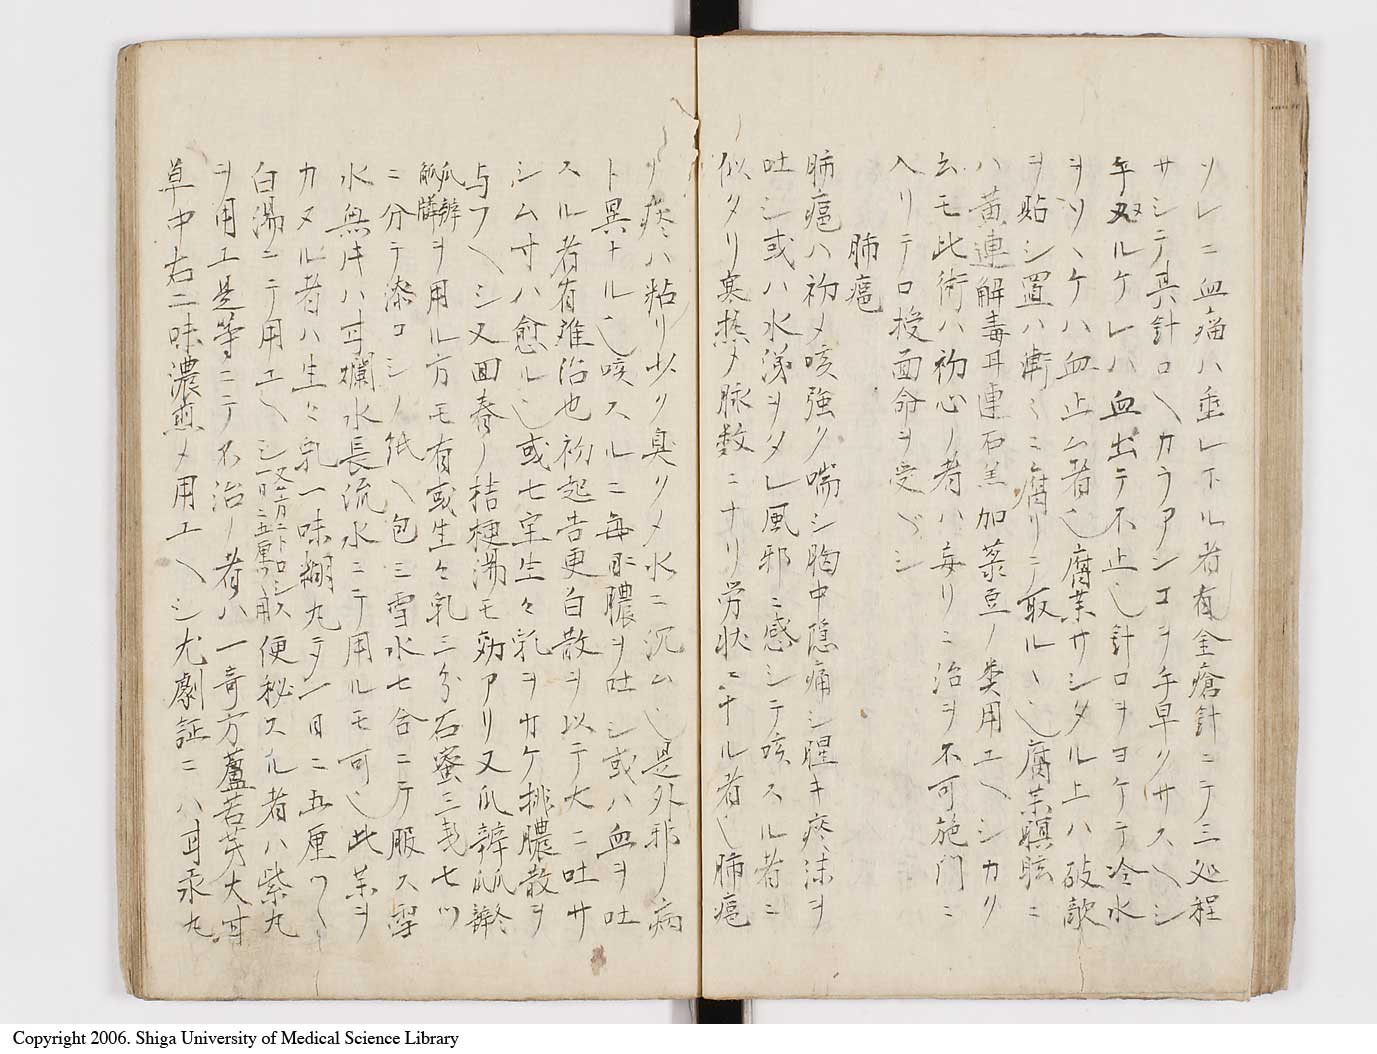 ソレニ血瘤ハ垂レ下ル者有金瘡針ニテ三処程
サシテ其針口ヘカラアンコヲ手早クサスヘシ
手ヌルケレハ血出テ不止也針口ヨケテ冷水
ヲソヽケハ血止ム者也腐薬サシタル上ハ破敵
ヲ貼シ置ハ漸々ニ腐リテ取ル也腐薬瞑眩ニ
ハ黄連解毒耳連石羔加菉豆ノ类用エヘシカリ
ム モ此術ハ初心ノ者ハ毎リニ治ヲ不可施門ニ
入リテ口授面命ヲ受ヘシ
肺癰
肺癰ハ初メ咳強ク喘シ胸中隠痛シ腥キ痰沫ヲ
吐シ或ハ水涕ヲタレ風邪ニ感シテ咳スル者ニ
似タリ寒热〆脉数ニナリ労状ニナル者也肺癰
ノ痰ハ粘リ少ク臭ク〆水ニ沉ム也是外邪ノ病
ト異ナル也咳スルニ毎ニ膿ヲ吐シ或ハ血ヲ吐
スル者有難治也初起吉更白散ヲ以テ大ニ吐サ
シム寸ハ愈ル也或七宝生々乳ヲカケ排膿散ヲ
与フヘシ又回春ノ桔梗湯モ効アリ又瓜辨瓜
瓜辨ヲ用ル方モ有或生々乳三分石蜜三戔七ツ
ニ分テ漆コシノ紙ヘ包ミ雪水七合ニテ服ス雪
水無キハ甘爛水長流水ニテ用ルモ可也此薬ヲ
カヌル者ハ生々乳一味糊丸テ一日ニ五厘ツヽ
白湯ニテ用エヘシ 便秘スル者ハ紫丸
ヲ用エ是等ニテ不治ノ者ハ一奇方蘆若芽大甘
草中右二味濃煎〆用エヘシ尤劇証ニハ甘汞丸